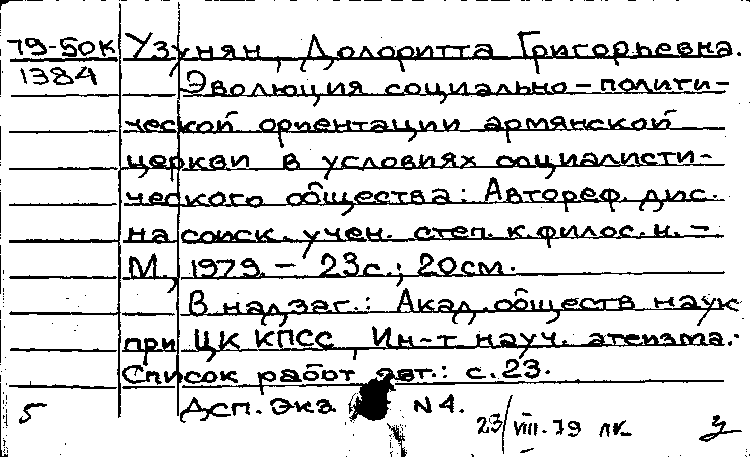 79-50К Узунян, Долоритта Григорьевна.
1384 Эволюция социально-полити-
ческой ориентации армянской
церкви в условиях социалисти-
ческого общества: Автореф. дис.
на соиск. учен. степ. к. филос. н. –
М., 1979. – 23с.; 20см.
В надзаг.: Акад. обществ наук
при ЦК КПСС, Ин-т науч. атеизма.
Список работ авт.: с. 23.
5 Дсп. Экз. N4.
23/VIII-79 лк